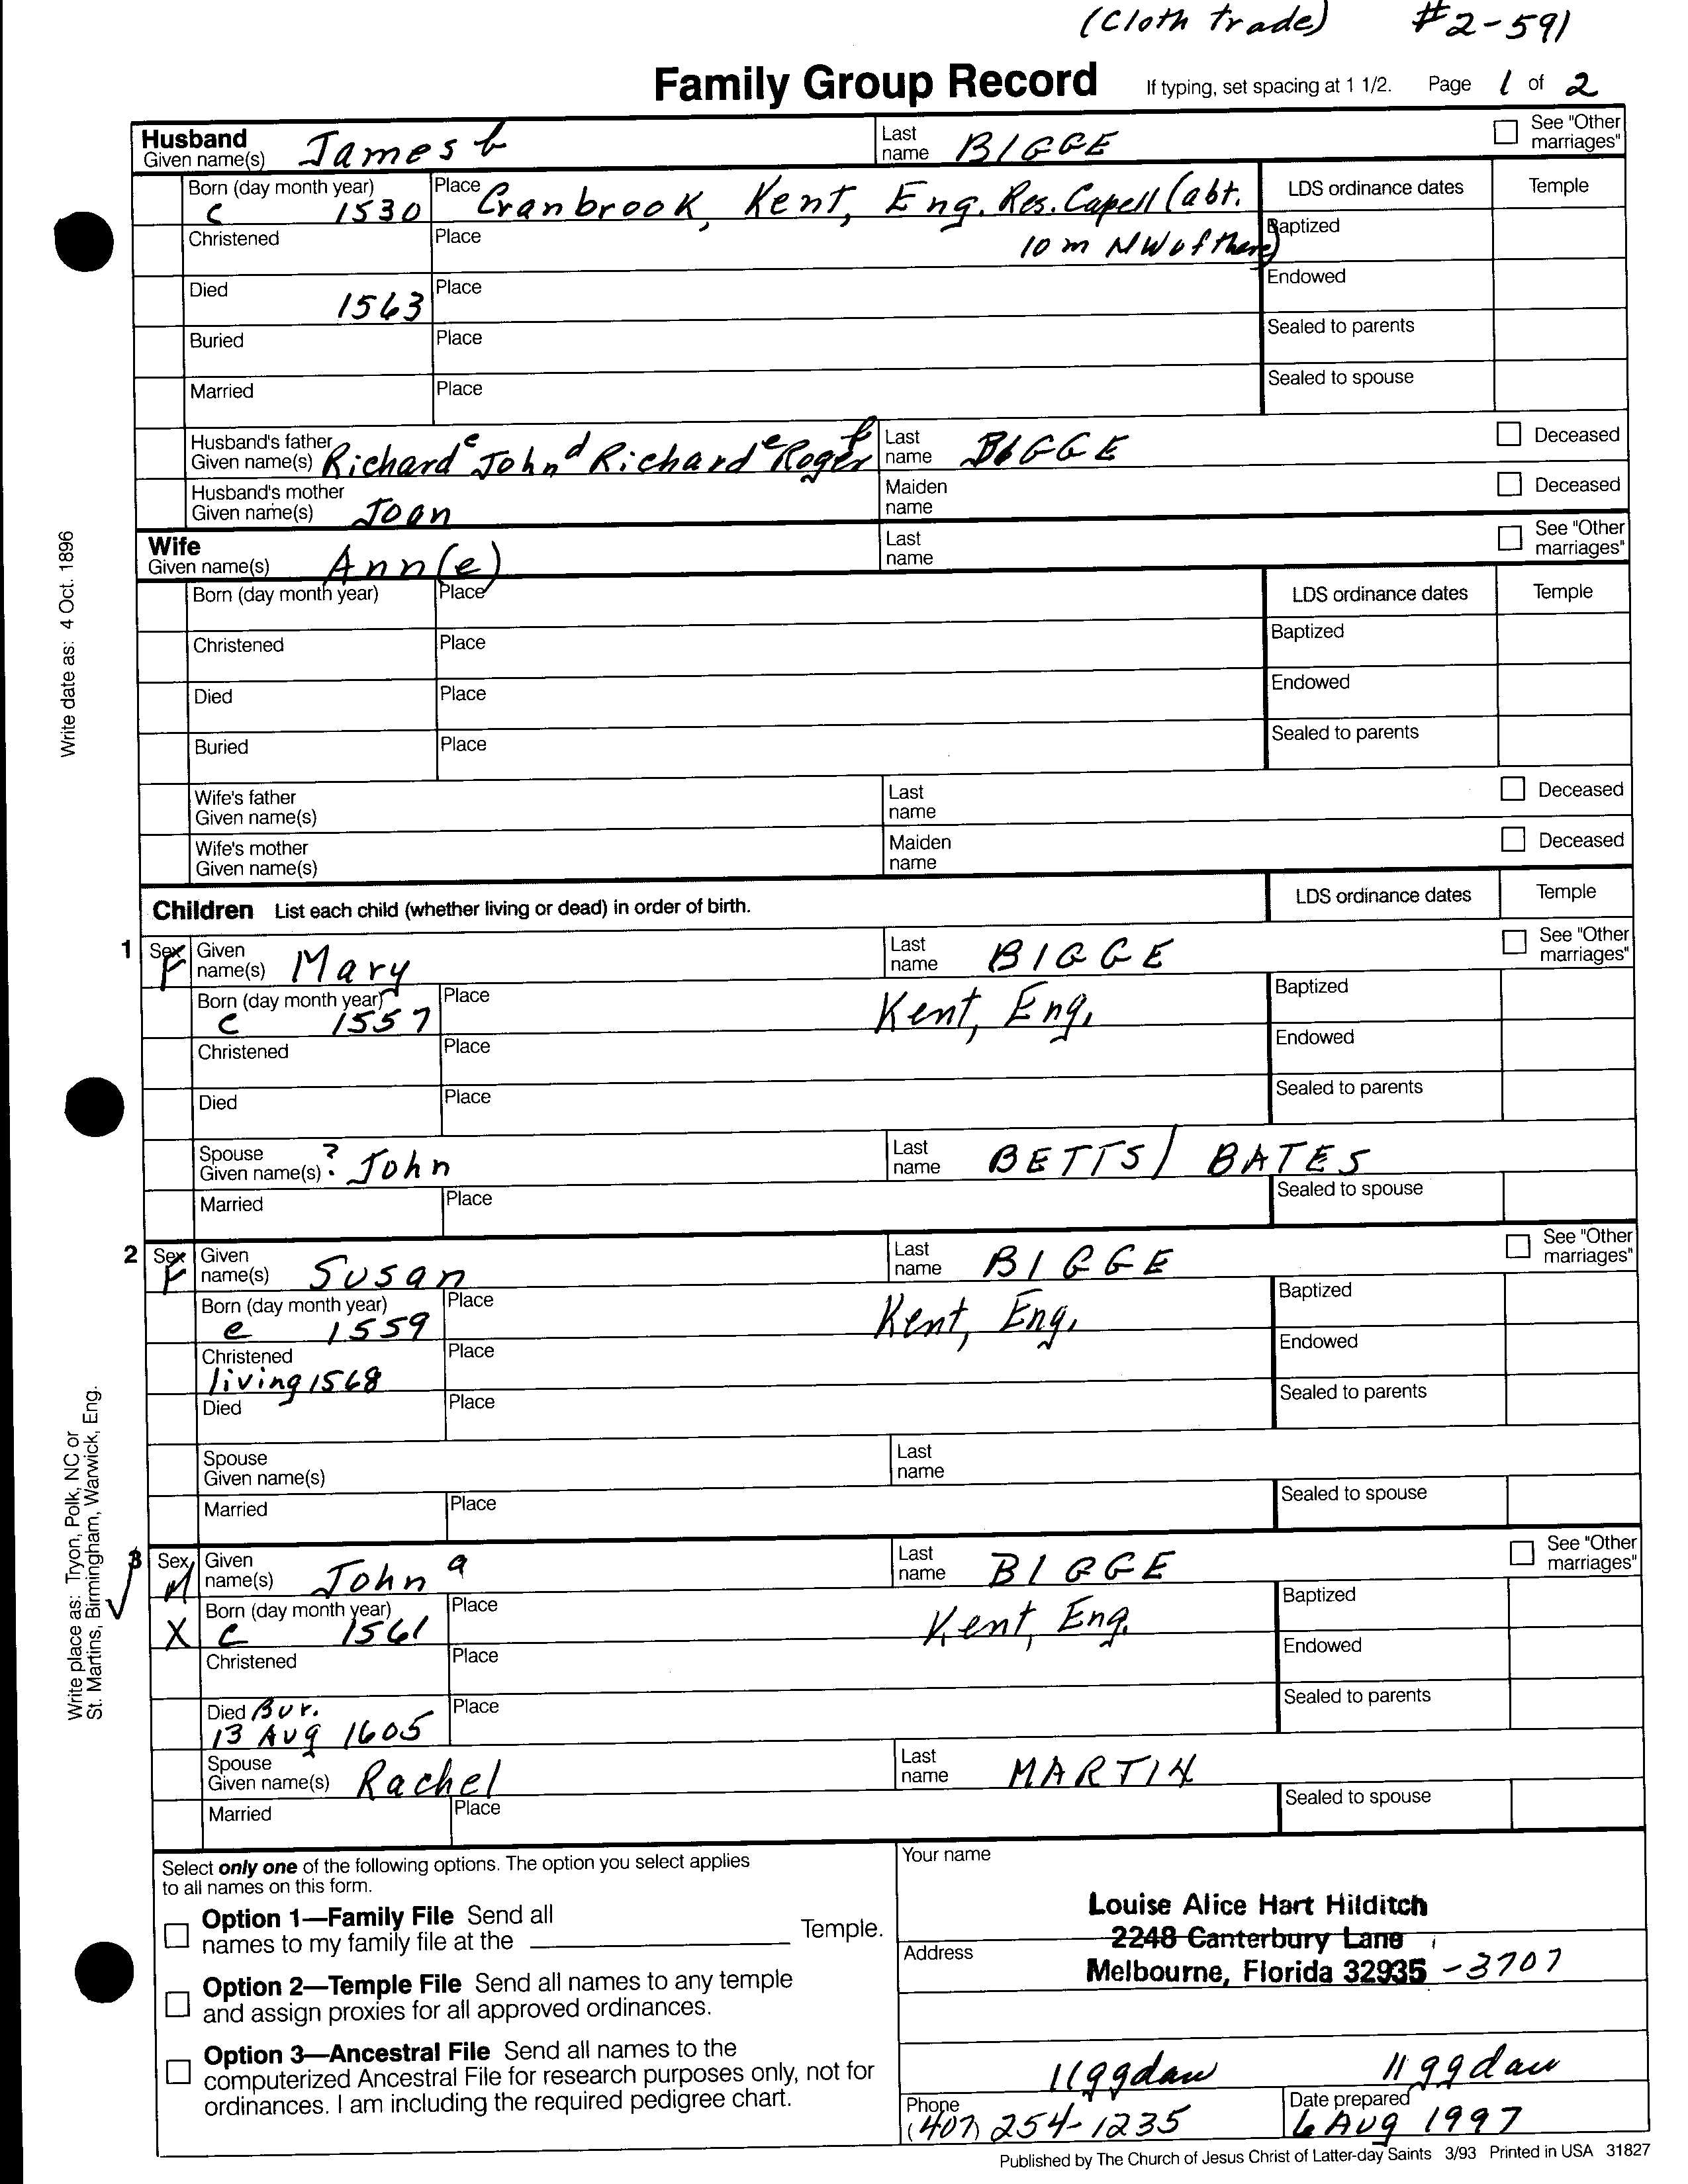 (Cloth trade) #2-591
Family Group Record If typing, set spacing at 1 1/2. Page 1 of 2
Husband
Given name(s) James b Last name BIGGE See "Other marriages"
Born (day month year) c 1530 Place Cranbrook, Kent, Eng. Res. Capell (abt. LDS ordinance dates Temple
Christened Place 10 m NW of there) Baptized
Died 1563 Place Endowed
Buried Place Sealed to parents
Married Place Sealed to spouse
Husband's father Given name(s) Richard c John d Richard e Roger f Last name BIGGE Deceased
Husband's mother Given name(s) Joan Maiden name Deceased
Wife
Given name(s) Ann(e) Last name See "Other marriages"
Born (day month year) Place LDS ordinance dates Temple
Christened Place Baptized
Died Place Endowed
Buried Place Sealed to parents
Wife's father Given name(s) Last name Deceased
Wife's mother Given name(s) Maiden name Deceased
Children List each child (whether living or dead) in order of birth. LDS ordinance dates Temple
1 Sex F Given name(s) Mary Last name BIGGE See "Other marriages"
Born (day month year) c 1557 Place Kent, Eng. Baptized
Christened Place Endowed
Died Place Sealed to parents
Spouse Given name(s) ? John Last name BETTS / BATES
Married Place Sealed to spouse
2 Sex F Given name(s) Susan Last name BIGGE See "Other marriages"
Born (day month year) c 1559 Place Kent, Eng. Baptized
Christened Place Endowed
living 1568
Died Place Sealed to parents
Spouse Given name(s) Last name
Married Place Sealed to spouse
3 Sex M Given name(s) John a Last name BIGGE See "Other marriages"
X Born (day month year) c 1561 Place Kent, Eng. Baptized
Christened Place Endowed
Died Bur. 13 Aug 1605 Place Sealed to parents
Spouse Given name(s) Rachel Last name MARTIN
Married Place Sealed to spouse
Select only one of the following options. The option you select applies
to all names on this form.
Option 1—Family File Send all
names to my family file at the Temple.
Option 2—Temple File Send all names to any temple
and assign proxies for all approved ordinances.
Option 3—Ancestral File Send all names to the
computerized Ancestral File for research purposes only, not for
ordinances. I am including the required pedigree chart.
Your name
Louise Alice Hart Hilditch
2248 Canterbury Lane
Address
Melbourne, Florida 32935 -3707
11ggdau 11ggdau
Phone (407) 254-1235 Date prepared 6 Aug 1997
Published by The Church of Jesus Christ of Latter-day Saints 3/93 Printed in USA 31827
Write date as: 4 Oct. 1896
Write place as: Tryon, Polk, NC or
St. Martins, Birmingham, Warwick, Eng.